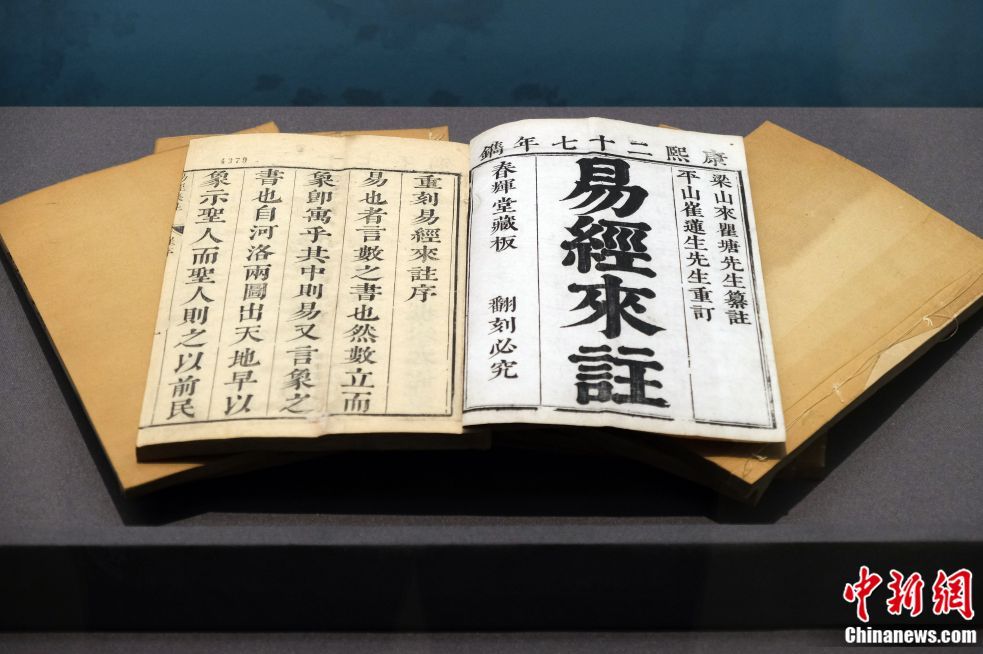 康熙二十七年鐫
梁山來瞿塘先生纂註
平山崔蓮生先生重訂
易經來註
春輝堂藏板 翻刻必究
重刻易經來註序
易也者言數之書也然數立而
象卽寓乎其中則易又言象之
書也自河洛兩圖出天地早以
象示聖人而聖人則之以前民
4379
中新網
Chinanews.com